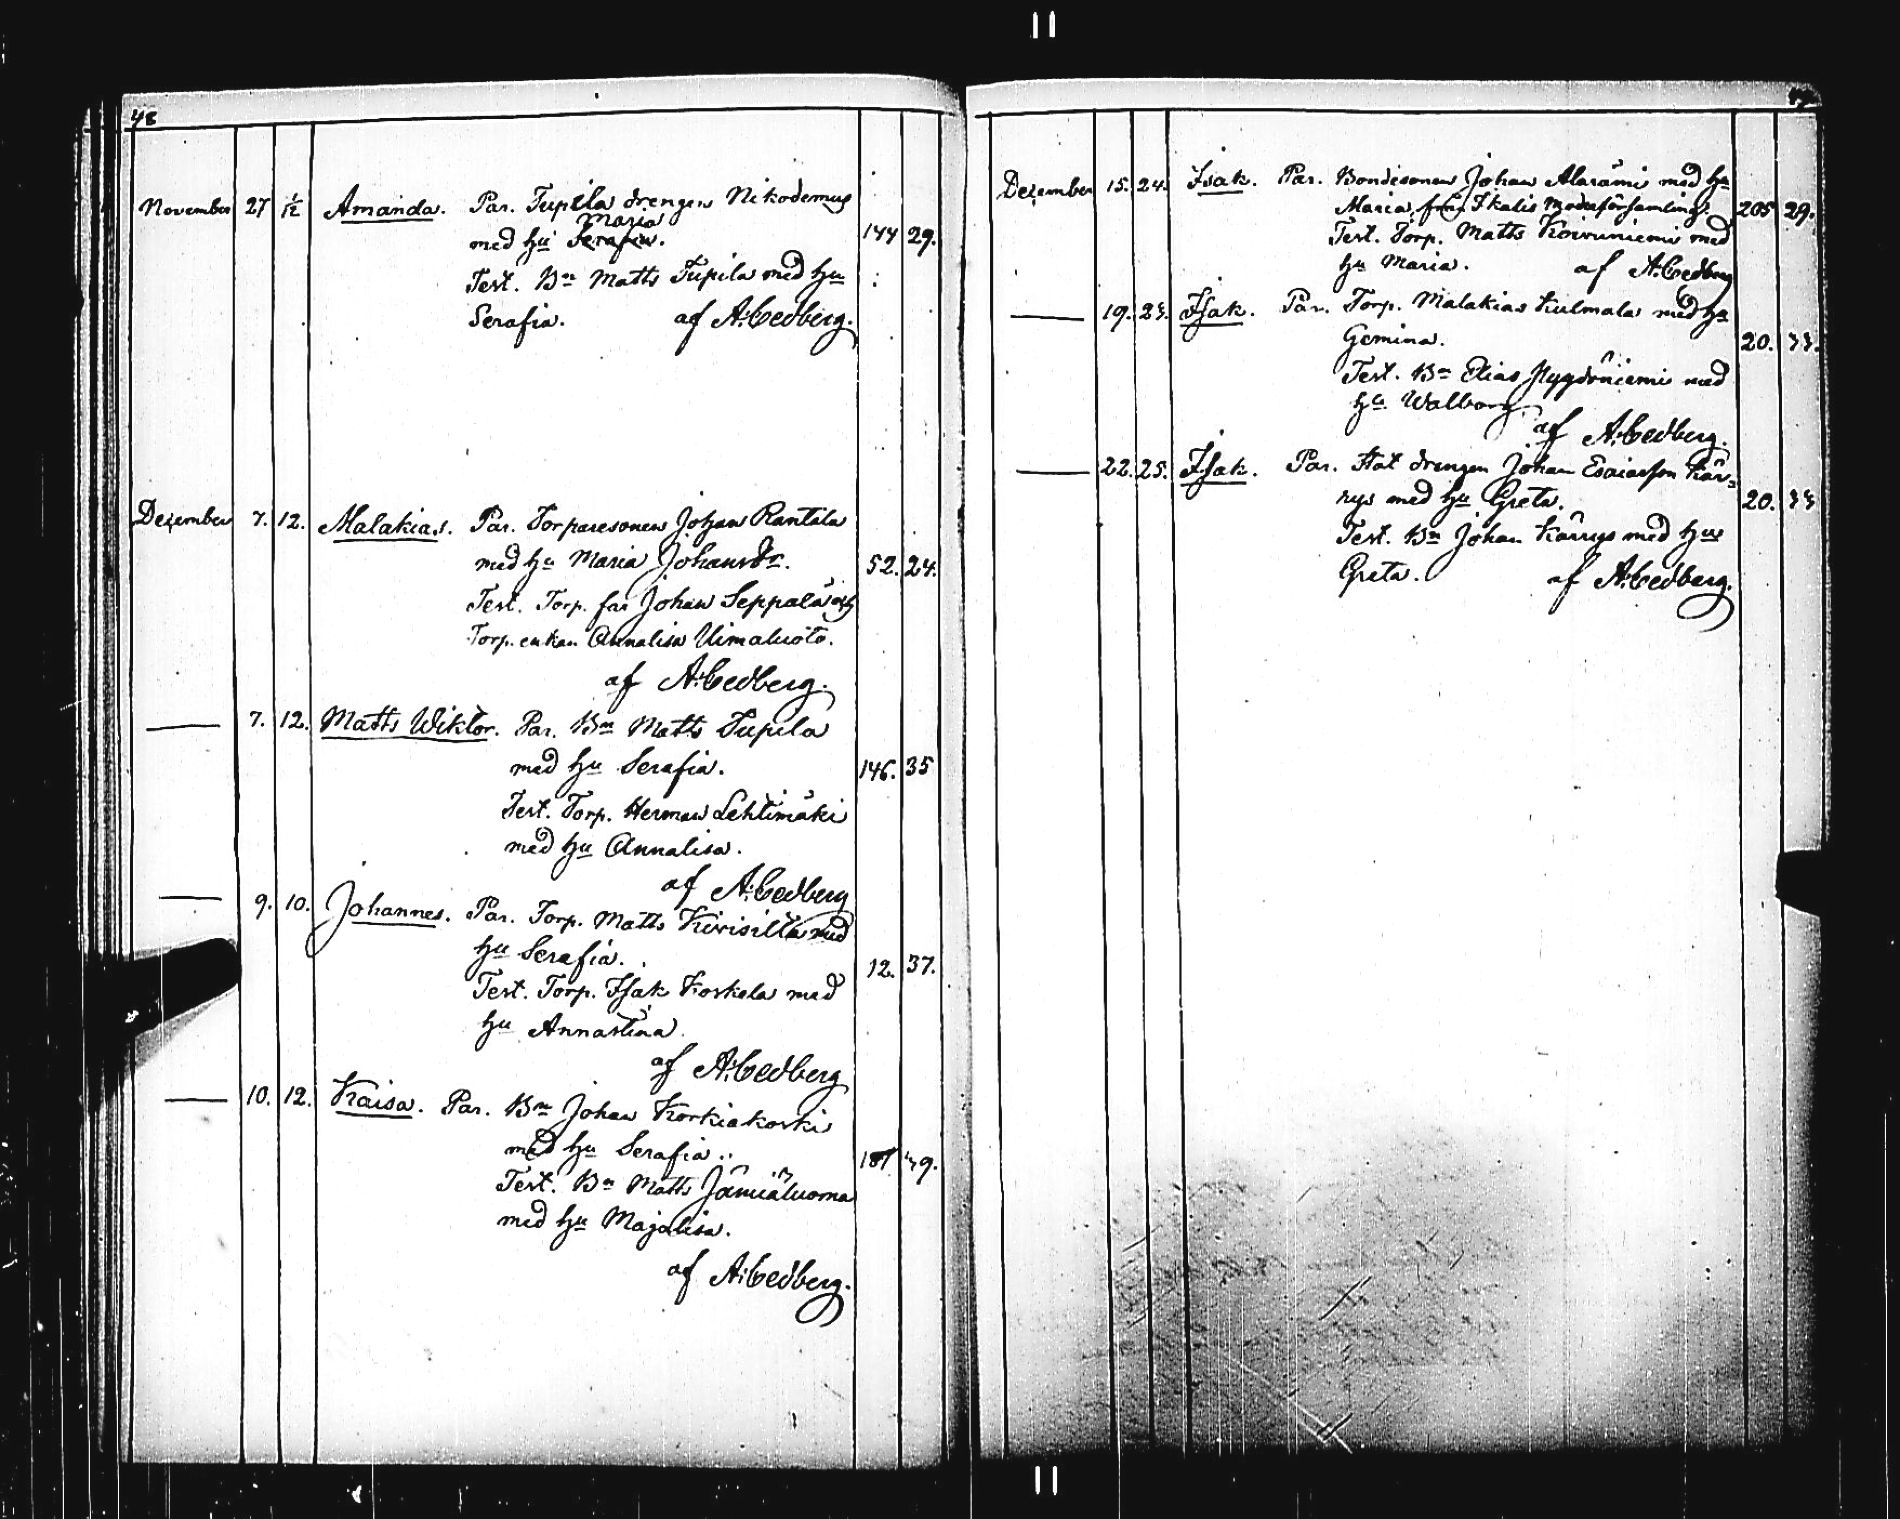 48
November 27 1/12 Amanda. Par. Tupila drengen Nikodemus
Maria
med hu Serafia. 144 29.
Test. Bn Matts Tupila med hu
Serafia. af A. Cedberg.
December 7. 12. Malakias. Par. Torparesonen Johan Rantala
med hu Maria Johansdr. 52. 24.
Test. Torp. far Johan Seppälä och
Torp. enkan Annalisa Uimaluoto.
af A. Cedberg.
— 7. 12. Matts Wiktor. Par. Bn Matts Tupila
med hu Serafia. 146. 35
Test. Torp. Herman Lehtimäki
med hu Annalisa.
af A. Cedberg
— 9. 10. Johannes. Par. Torp. Matts Kivisilta med
hu Serafia. 12. 37.
Test. Torp. Isak Koskela med
hu Annastina.
af A. Cedberg
— 10. 12. Kaisa. Par. Bn Johan Korkiakoski
med hu Serafia. 39.
Test. Bn Matts Jämiäluoma
med hu Majalisa.
af A. Cedberg.
December 15. 24. Isak. Par. Bondesonen Johan Alarämi med hu
Maria, från Ikalis Moderförsamling. 205 29.
Test. Torp. Matts Koivuniemi med
hu Maria. af A. Cedberg
— 19. 25. Isak. Par. Torp. Malakias Kulmala med hu
Gemina. 20. 33.
Test. Bn Elias Pygöniemi med
hu Walborg.
af A. Cedberg.
— 22. 25. Isak. Par. Stat drengen Johan Esaiasson Kär=
rys med hu Greta. 20. 33
Test. Bn Johan Kärrys med hu
Greta. af A. Cedberg.